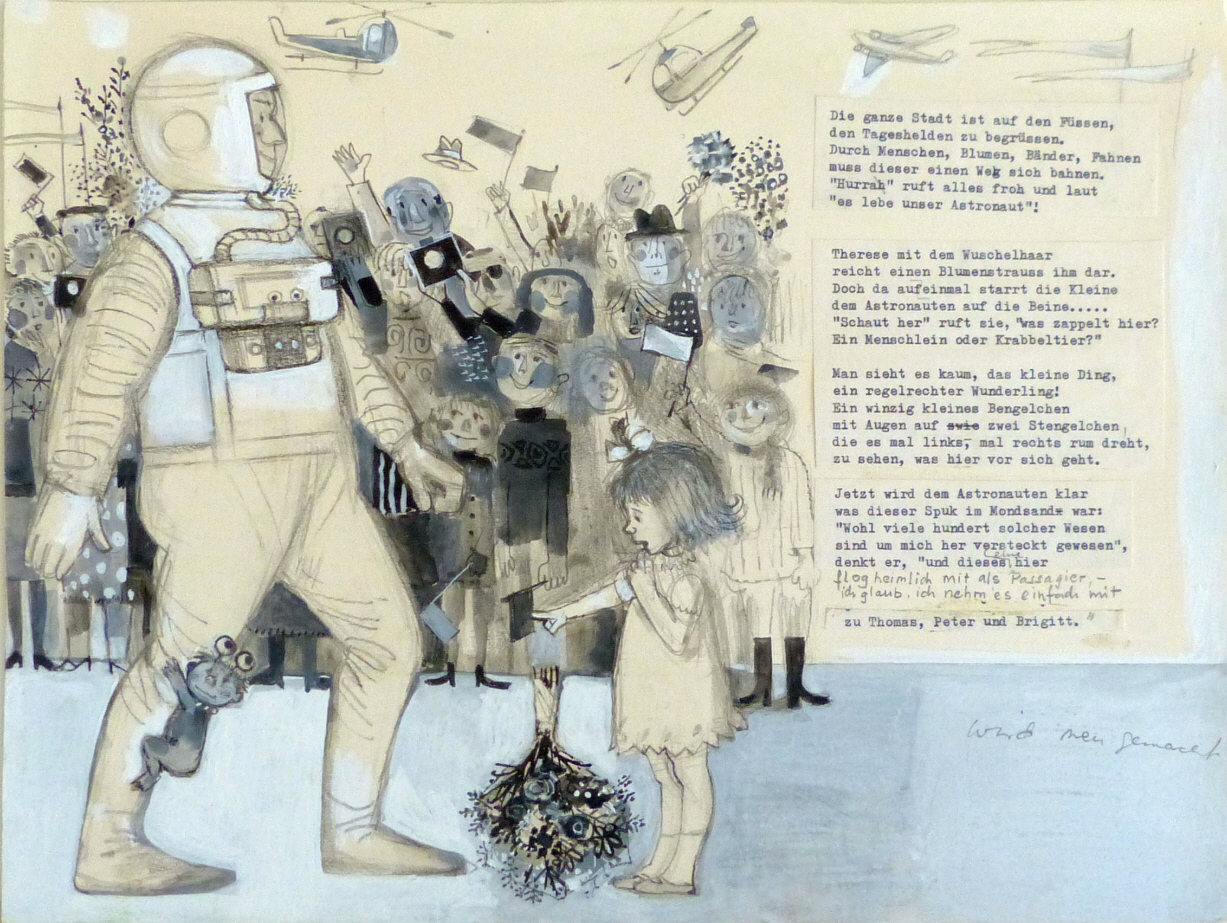 Die ganze Stadt ist auf den Füssen,
den Tageshelden zu begrüssen.
Durch Menschen, Blumen, Bänder, Fahnen
muss dieser einen Weg sich bahnen.
"Hurrah" ruft alles froh und laut
"es lebe unser Astronaut"!
Therese mit dem Wuschelhaar
reicht einen Blumenstrauss ihm dar.
Doch da aufeinmal starrt die Kleine
dem Astronauten auf die Beine.....
"Schaut her" ruft sie, "was zappelt hier?
Ein Menschlein oder Krabbeltier?"
Man sieht es kaum, das kleine Ding,
ein regelrechter Wunderling!
Ein winzig kleines Bengelchen
mit Augen auf swie zwei Stengelchen,
die es mal links, mal rechts rum dreht,
zu sehen, was hier vor sich geht.
Jetzt wird dem Astronauten klar
was dieser Spuk im Mondsand war:
"Wohl viele hundert solcher Wesen
sind um mich her versteckt gewesen",
denkt er, "und dieses eine hier
flog heimlich mit als Passagier, –
ich glaub, ich nehm es einfach mit
zu Thomas, Peter und Brigitt."
wird neu gemacht